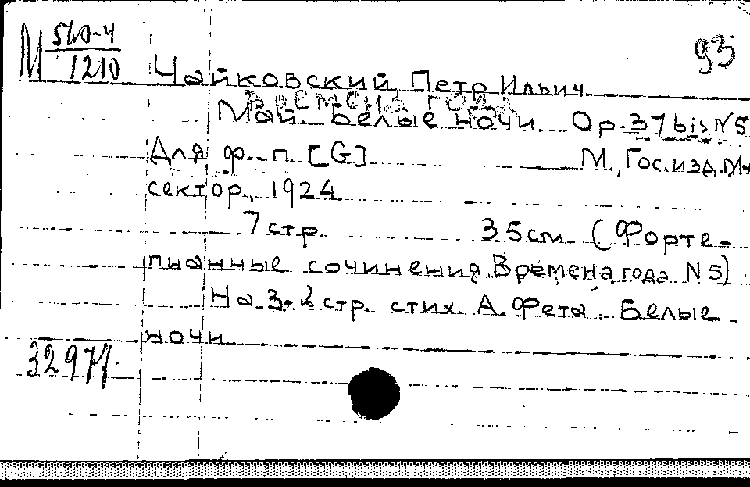 М 560-4
1210
93
Чайковский Петр Ильич
Времена года
Май. Белые ночи Op. 37 bis N5
Для ф.-п. [G] М., Гос. изд. М-
сектор, 1924
7 стр. 35 см. (Форте-
пианные сочинения. Времена года. N5)
На 3. стр. стих А. Фета. Белые
ночи